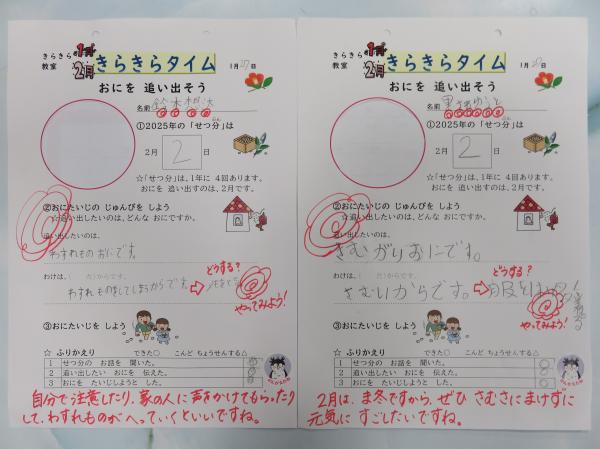 きらきら
教室
1月
2月
きらきらタイム
1月27日
おにを 追い出そう
名前
①2025年の「せつ分」は
2月 2 日
☆「せつ分」は、1年に 4回あります。
おにを 追い出すのは、2月です。
②おにたいじの じゅんびを しよう
☆追い出したいのは、どんな おにですか。
追い出したいのは、
わすれものおにです。
わけは、( だ)からです。
わすれものをしてしまうからです。
どうする?
やってみよう!
③おにたいじを しよう
☆ ふりかえり できた○ こんど ちょうせんする△
1 せつ分の お話を 聞いた。
2 追い出したい おにを 伝えた。
3 おにを たいじしようと した。
自分で注意したり、家の人に声をかけてもらったり
して、わすれものがへっていくといいですね。
きらきら
教室
1月
2月
きらきらタイム
1月
日
おにを 追い出そう
名前
①2025年の「せつ分」は
2月 2 日
☆「せつ分」は、1年に 4回あります。
おにを 追い出すのは、2月です。
②おにたいじの じゅんびを しよう
☆追い出したいのは、どんな おにですか。
追い出したいのは、
さむがりおにです。
わけは、( だ)からです。
さむいからです。
どうする?
やってみよう!
③おにたいじを しよう
☆ ふりかえり できた○ こんど ちょうせんする△
1 せつ分の お話を 聞いた。
2 追い出したい おにを 伝えた。
3 おにを たいじしようと した。
2月は、ま冬ですから、ぜひ さむさにまけずに
元気に すごしたいですね。